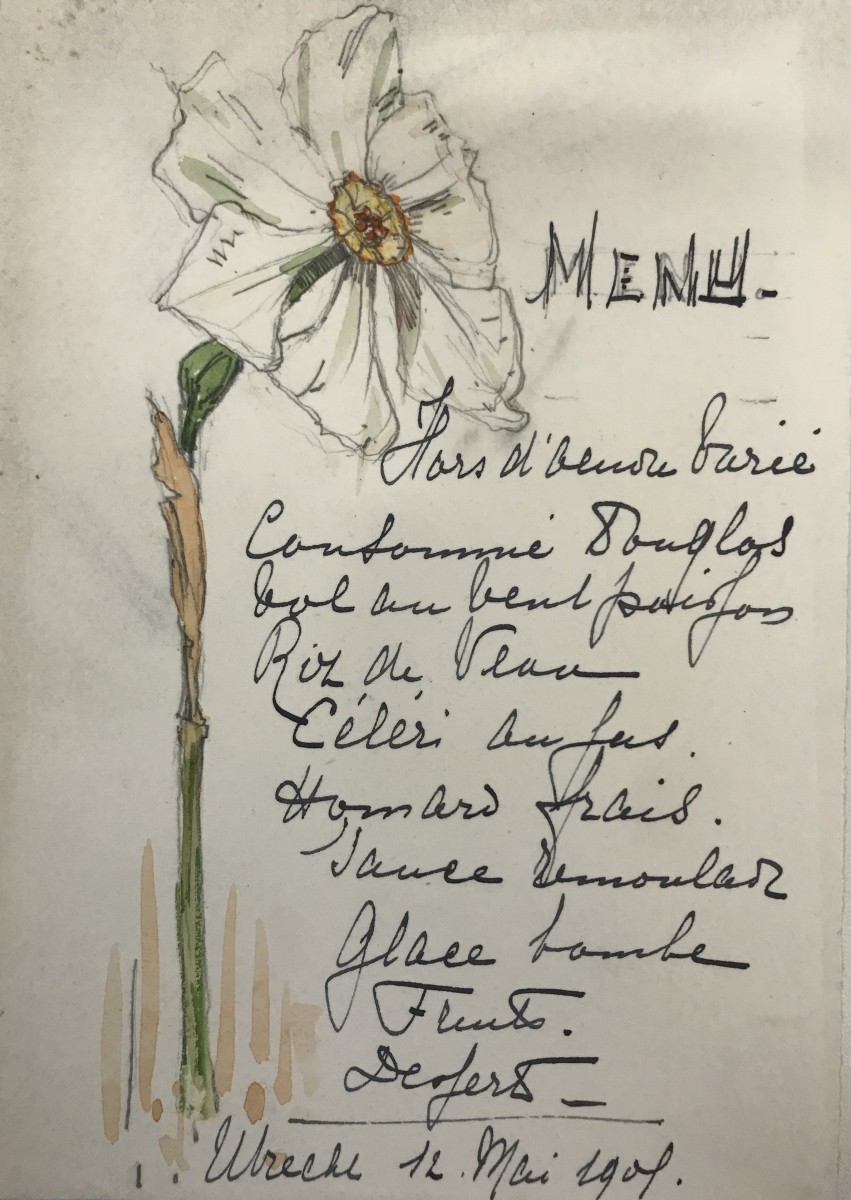 MENU.
Hors d'oeuvre varié
Consommé Douglas
Vol au vent poisson
Riz de Veau
Céléri au jus.
Homard frais.
Sauce remoulade
Glace bombe
Fruits.
Dessert
Utrecht 12 Mai